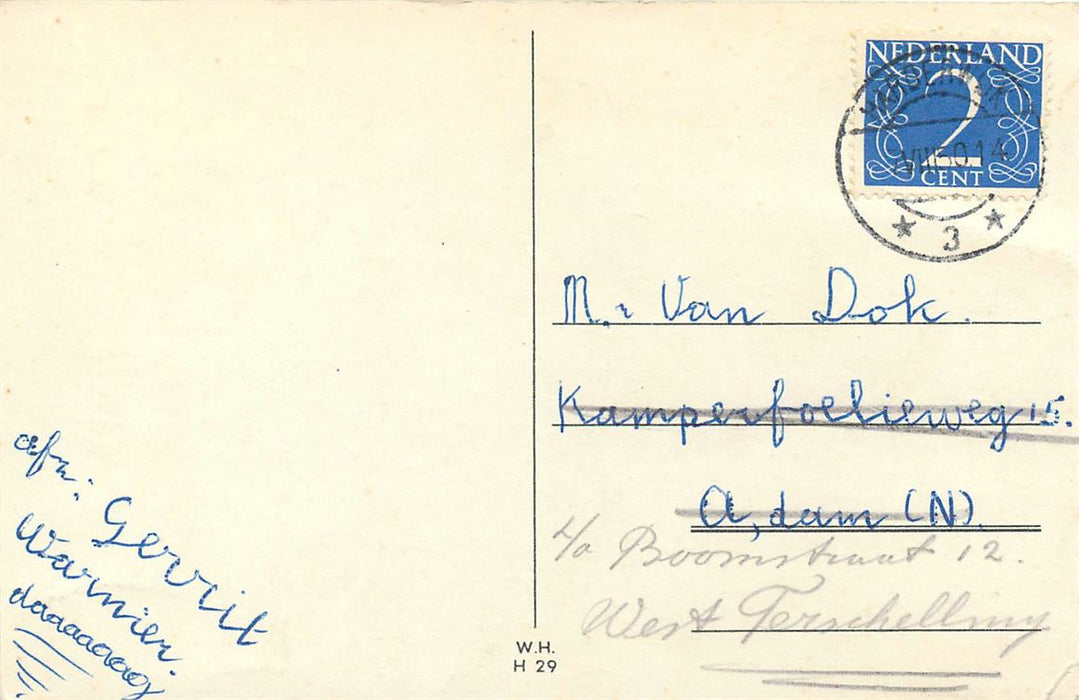 NEDERLAND
2
CENT
VIII 50 14
3
M.r Van Dok.
Kamperfoelieweg 15.
A,dam (N).
p/a Boomstraat 12.
West Terschelling
afz: Gerrit
Warnier.
daaaaaaag
W.H.
H 29